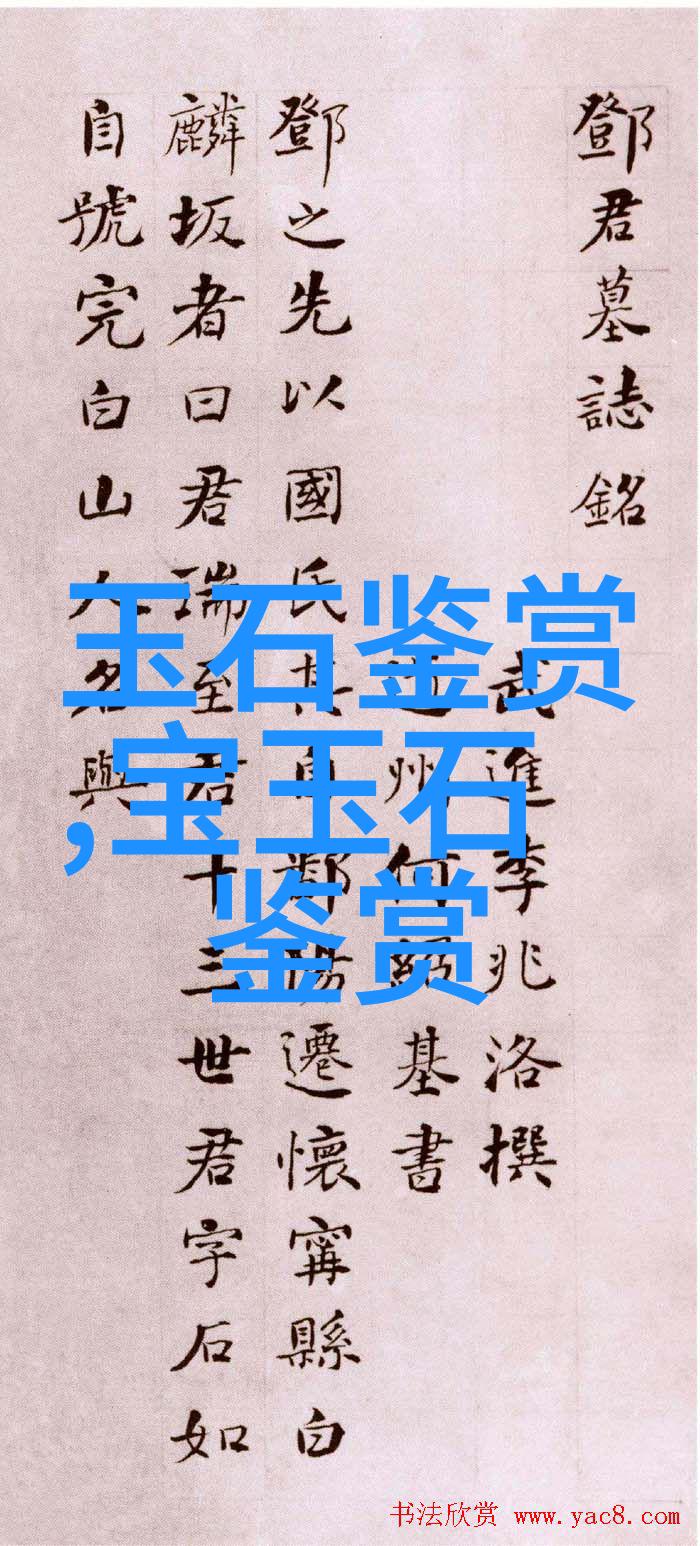 鄧君墓誌銘
武進李兆洛撰
道州何紹基書
鄧之先以國氏其自鄱陽遷懷甯縣白
麟坂者曰君瑞至君十三世君字石如
自號完白山人名與
玉石鉴赏
,宝玉石
鉴赏
书法欣赏 www.yac8.com